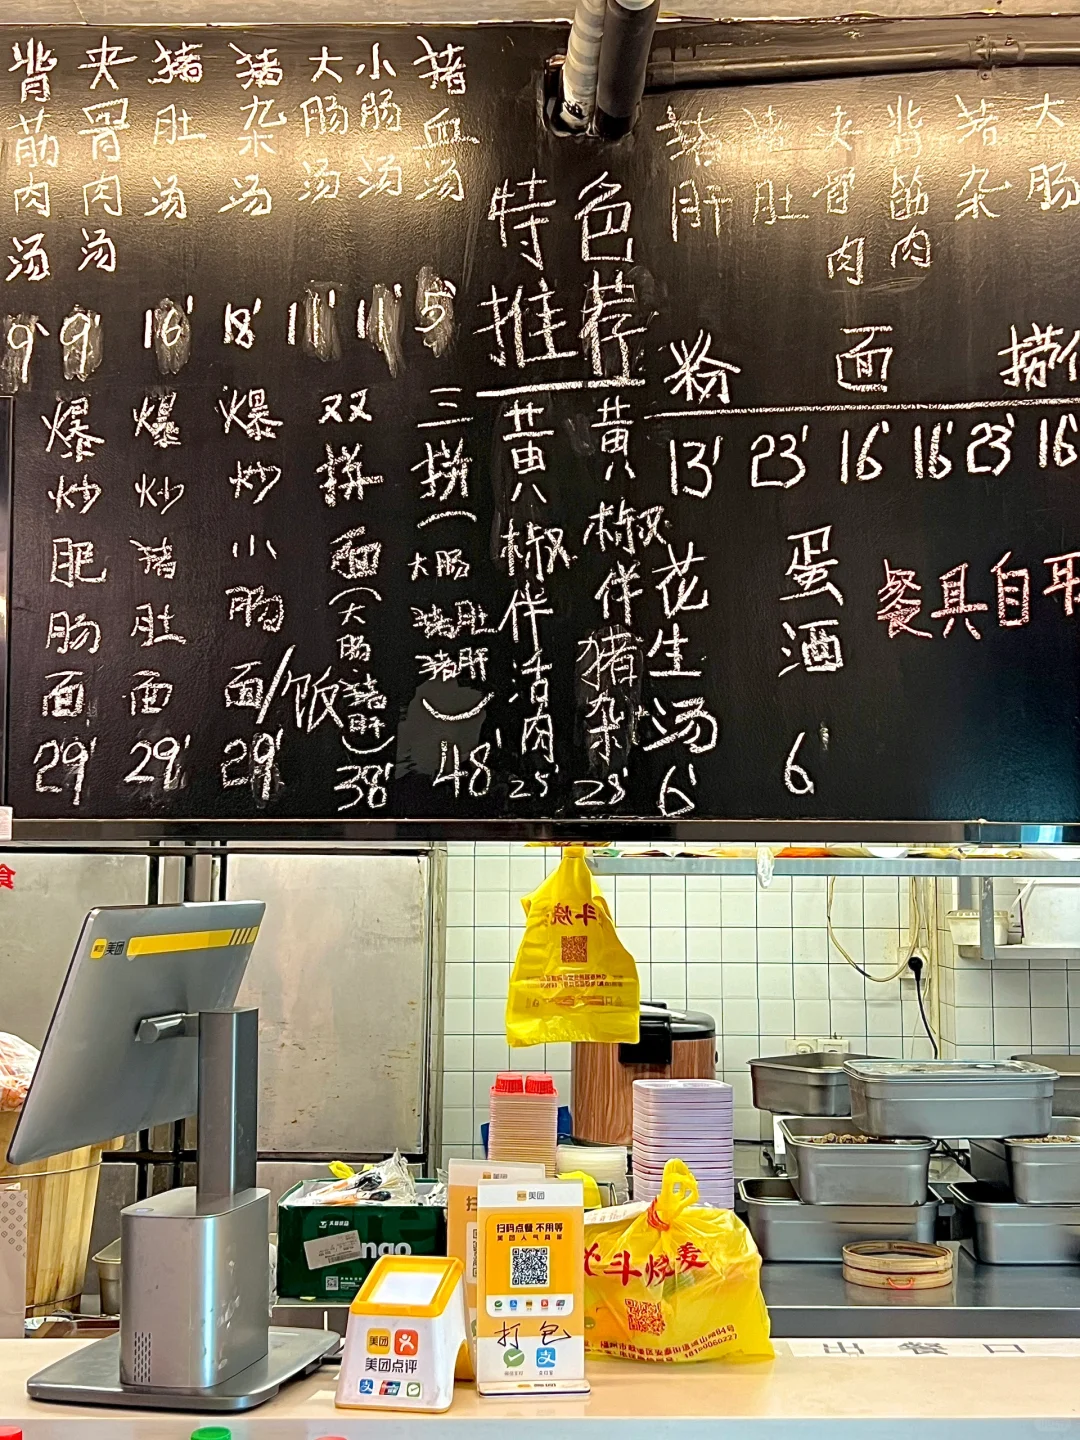 背筋肉汤 9'
夹骨肉汤 9'
猪肚汤 16'
猪杂汤 18'
大肠汤 11'
小肠汤 11'
猪血汤 5'
特色
推荐
猪肝
猪肚
夹骨肉
背筋肉
猪杂
大肠
粉 面 捞
13' 23' 16' 16' 23' 16'
爆炒肥肠面 29'
爆炒猪肚面 29'
爆炒小肠面/饭 29'
双拼面(大肠猪肝) 38'
三拼(大肠猪肚猪肝) 48'
黄八椒伴活肉 25'
黄八椒伴猪杂 28'
花生汤 6'
蛋酒 6
餐具自
食
美团
斗烧
美团
扫码点餐 不用等
美团人气商家
打包
美团
美团点评
斗烧麦
18100060227
出餐口